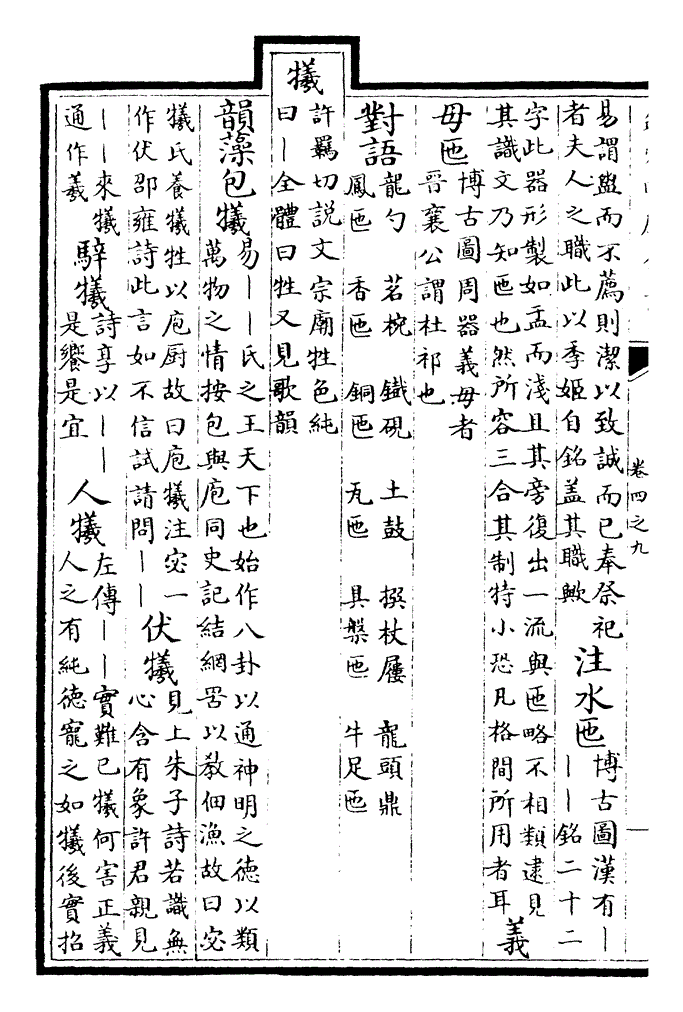 易謂盥而不薦則潔以致誠而已奉祭祀
者夫人之職此以季姬自銘盖其職歟
注水匜
博古圖漢有〡
〡〡銘二十二
字此器形製如盂而淺且其旁復出一流與匜略不相類逮見
其識文乃知匜也然所容三合其制特小恐凡格間所用者耳
義
母匜
博古圖周器義母者
晉襄公謂杜祁也
對語
龍勺 茗椀 鐵硯 土鼓 撰杖屨 龍頭鼎
鳳匜 香匜 銅匜 瓦匜 具槃匜 牛足匜
犧
許羈切説文宗廟牲色純
曰〡全體曰牲又見歌韻
韻藻
包犧
易〡〡氏之王天下也始作八卦以通神明之德以類
萬物之情按包與庖同史記結網罟以教佃漁故曰宓
犧氏養犧牲以庖厨故曰庖犧注宓一
作伏邵雍詩此言如不信試請問〡〡
伏犧
見上朱子詩若識無
心含有象許君親見
〡〡來犧
通作羲
騂犧
詩享以〡〡
是饗是宜
人犧
左傳〡〡實難已犧何害正義
人之有純德寵之如犧後實招
卷四之九